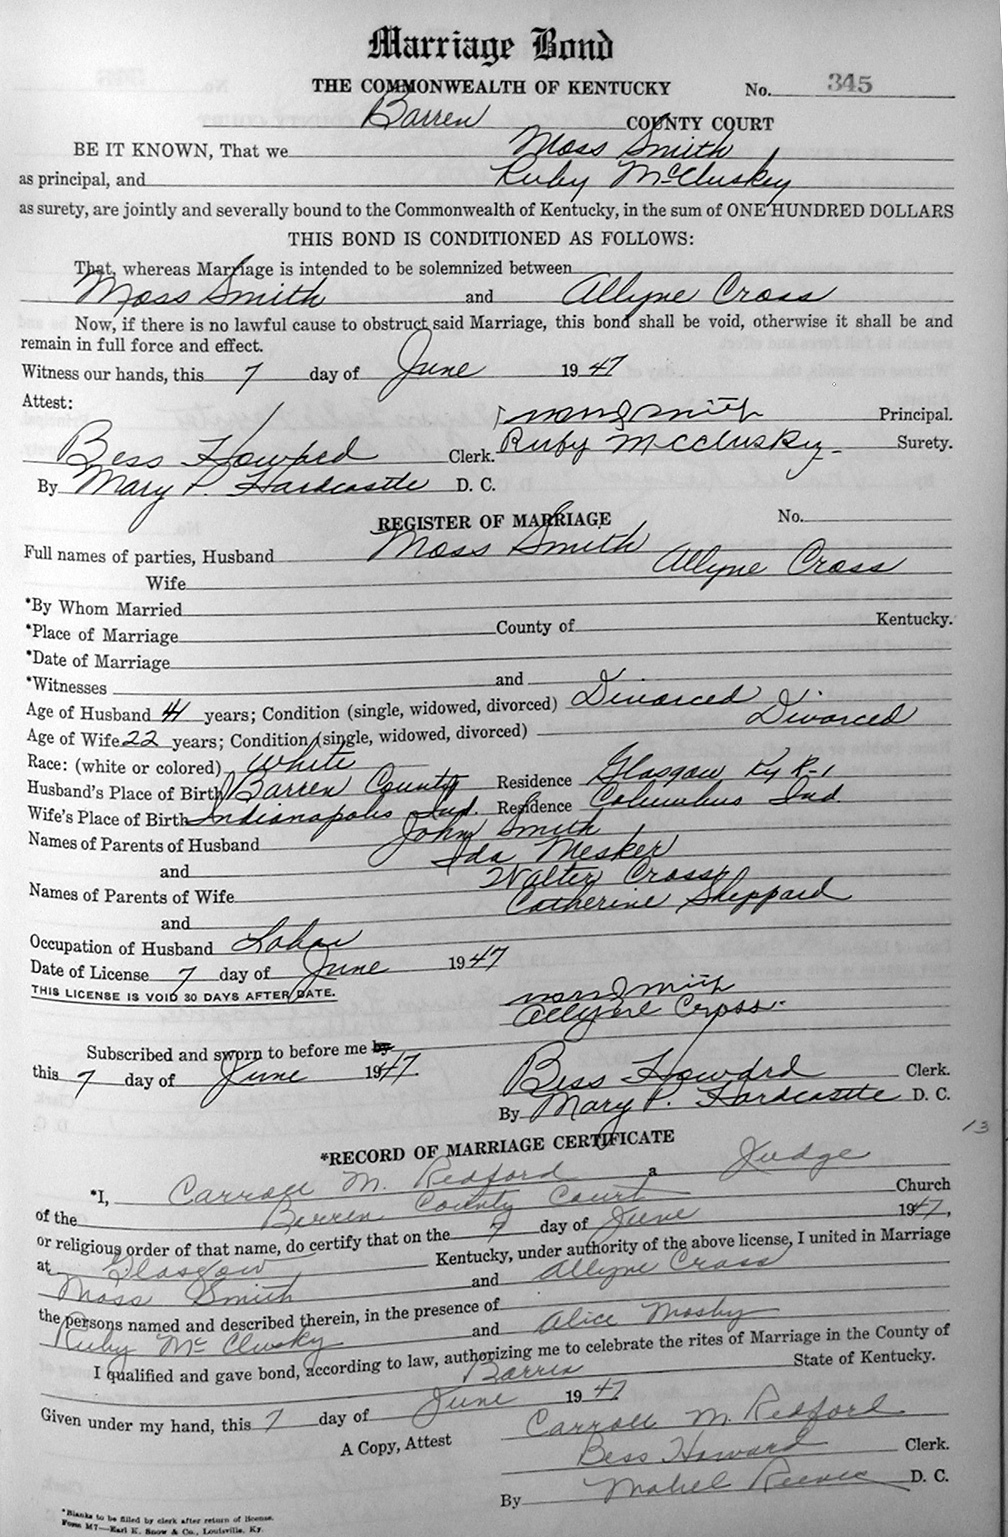 Marriage Bond
THE COMMONWEALTH OF KENTUCKY No. 345
Barren COUNTY COURT
BE IT KNOWN, That we Moss Smith
as principal, and Ruby McCluskey
as surety, are jointly and severally bound to the Commonwealth of Kentucky, in the sum of ONE HUNDRED DOLLARS
THIS BOND IS CONDITIONED AS FOLLOWS:
That, whereas Marriage is intended to be solemnized between
Moss Smith and Allyne Cross
Now, if there is no lawful cause to obstruct said Marriage, this bond shall be void, otherwise it shall be and
remain in full force and effect.
Witness our hands, this 7 day of June 1947
Attest: Moss Smith Principal.
Bess Howard Clerk. Ruby McClusky Surety.
By Mary P. Hardcastle D. C.
REGISTER OF MARRIAGE No.
Full names of parties, Husband Moss Smith
Wife Allyne Cross
*By Whom Married
*Place of Marriage County of Kentucky.
*Date of Marriage
*Witnesses and
Age of Husband 41 years; Condition (single, widowed, divorced) Divorced
Age of Wife 22 years; Condition (single, widowed, divorced) Divorced
Race: (white or colored) White
Husband's Place of Birth Barren County Residence Glasgow Ky R-1
Wife's Place of Birth Indianapolis Ind. Residence Columbus Ind.
Names of Parents of Husband John Smith
and Ida Mesker
Names of Parents of Wife Walter Cross
and Catherine Sheppard
Occupation of Husband Labor
Date of License 7 day of June 1947
THIS LICENSE IS VOID 30 DAYS AFTER DATE.
Moss Smith
Allyne Cross
Subscribed and sworn to before me by
this 7 day of June 1947. Bess Howard Clerk.
By Mary P. Hardcastle D. C.
13
*RECORD OF MARRIAGE CERTIFICATE
*I, Carroll M. Redford a Judge
of the Barren County Court Church
or religious order of that name, do certify that on the 7 day of June 1947,
at Glasgow Kentucky, under authority of the above license, I united in Marriage
Moss Smith and Allyne Cross
the persons named and described therein, in the presence of
Ruby McClusky and Alice Mosby
I qualified and gave bond, according to law, authorizing me to celebrate the rites of Marriage in the County of
Barren State of Kentucky.
Given under my hand, this 7 day of June 1947
Carroll M. Redford
A Copy, Attest Bess Howard Clerk.
By Mabel Reever D. C.
*Blanks to be filled by clerk after return of license.
Form M7—Earl K. Snow & Co., Louisville, Ky.